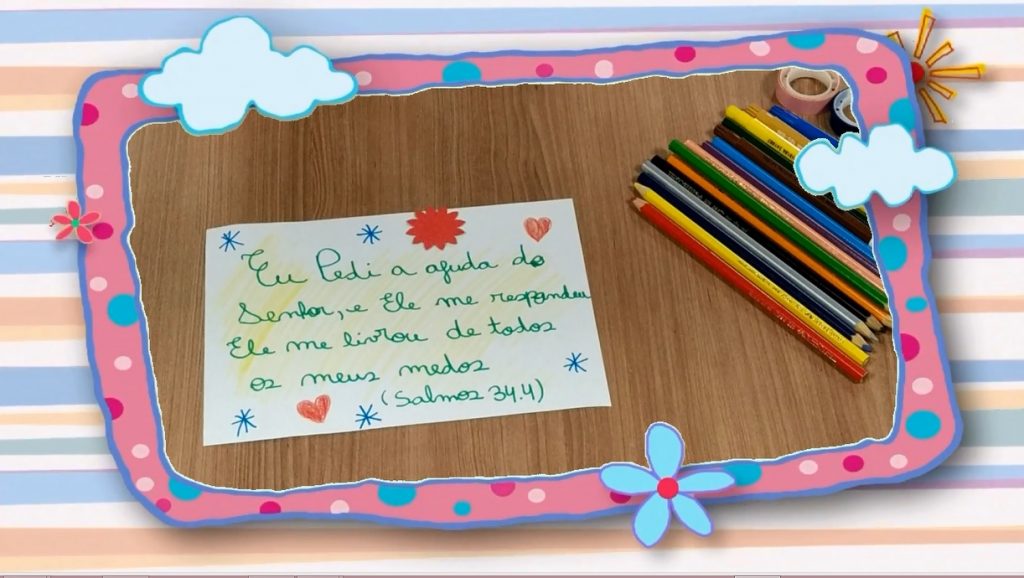 Eu Pedi a ajuda do
Senhor, e Ele me respondeu
Ele me livrou de todos
os meus medos
(Salmos 34.4)